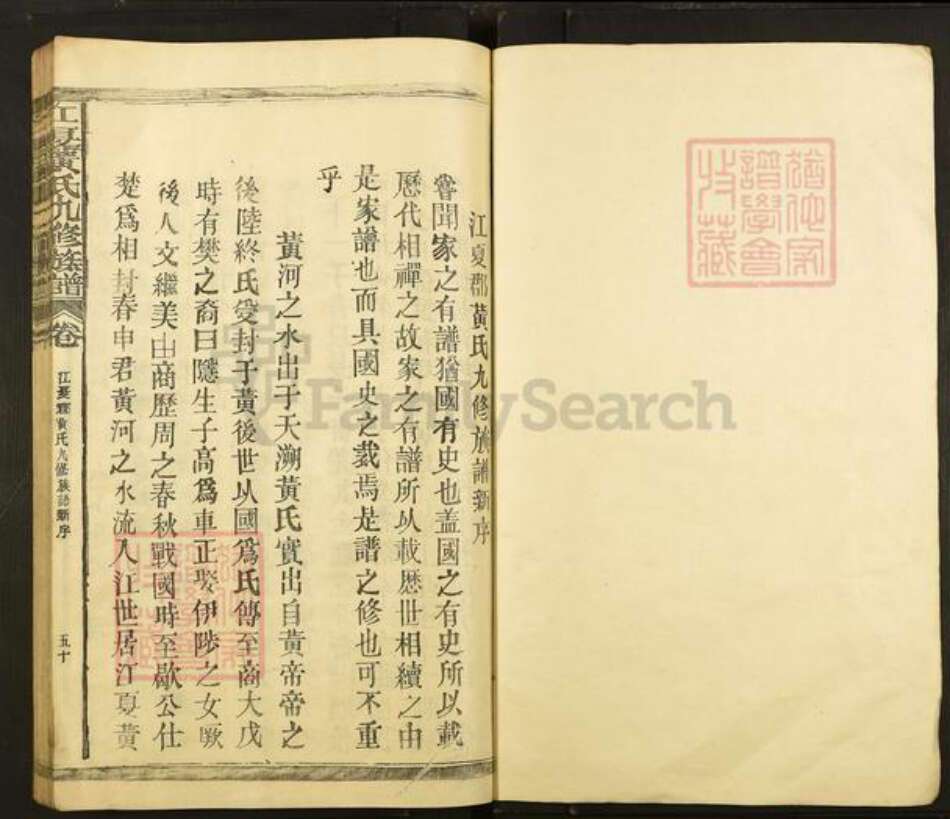 江夏郡黃氏九修族譜新序
嘗聞家之有譜猶國有史也盖國之有史所以載
歷代相禪之故家之有譜所以載歷世相續之由
是家譜也而具國史之裁焉是譜之修也可不重
乎
黃河之水出于天溯黃氏實出自黃帝帝之
後陸終氏受封于黃後世以國爲氏傳至商大戊
時有樊之裔曰隱生子高爲車正娶伊陟之女厥
後人文繼美由商歷周之春秋戰國時至歇公仕
楚爲相封春申君黃河之水流入江世居江夏黃
江夏黃氏九修族譜
卷
江夏郡黃氏九修族譜新序
五十
家譜學會收藏
FamilySearch